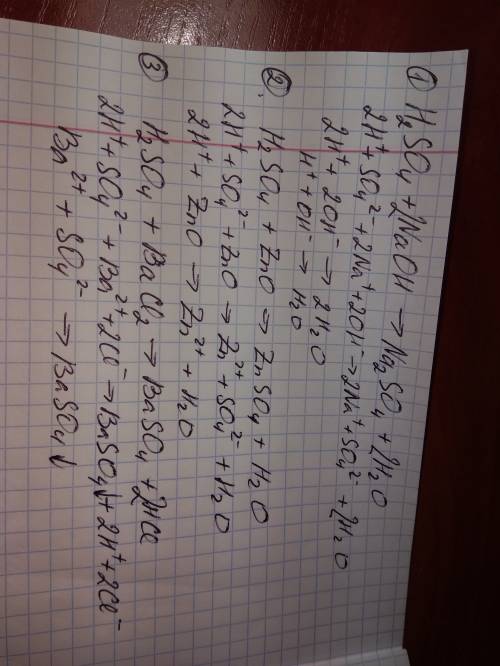 ① H₂SO₄ + 2NaOH → Na₂SO₄ + 2H₂O
2H⁺ + SO₄²⁻ + 2Na⁺ + 2OH⁻ → 2Na⁺ + SO₄²⁻ + 2H₂O
2H⁺ + 2OH⁻ → 2H₂O
H⁺ + OH⁻ → H₂O
② H₂SO₄ + ZnO → ZnSO₄ + H₂O
2H⁺ + SO₄²⁻ + ZnO → Zn²⁺ + SO₄²⁻ + H₂O
2H⁺ + ZnO → Zn²⁺ + H₂O
③ H₂SO₄ + BaCl₂ → BaSO₄ + 2HCl
2H⁺ + SO₄²⁻ + Ba²⁺ + 2Cl⁻ → BaSO₄↓ + 2H⁺ + 2Cl⁻
Ba²⁺ + SO₄²⁻ → BaSO₄↓